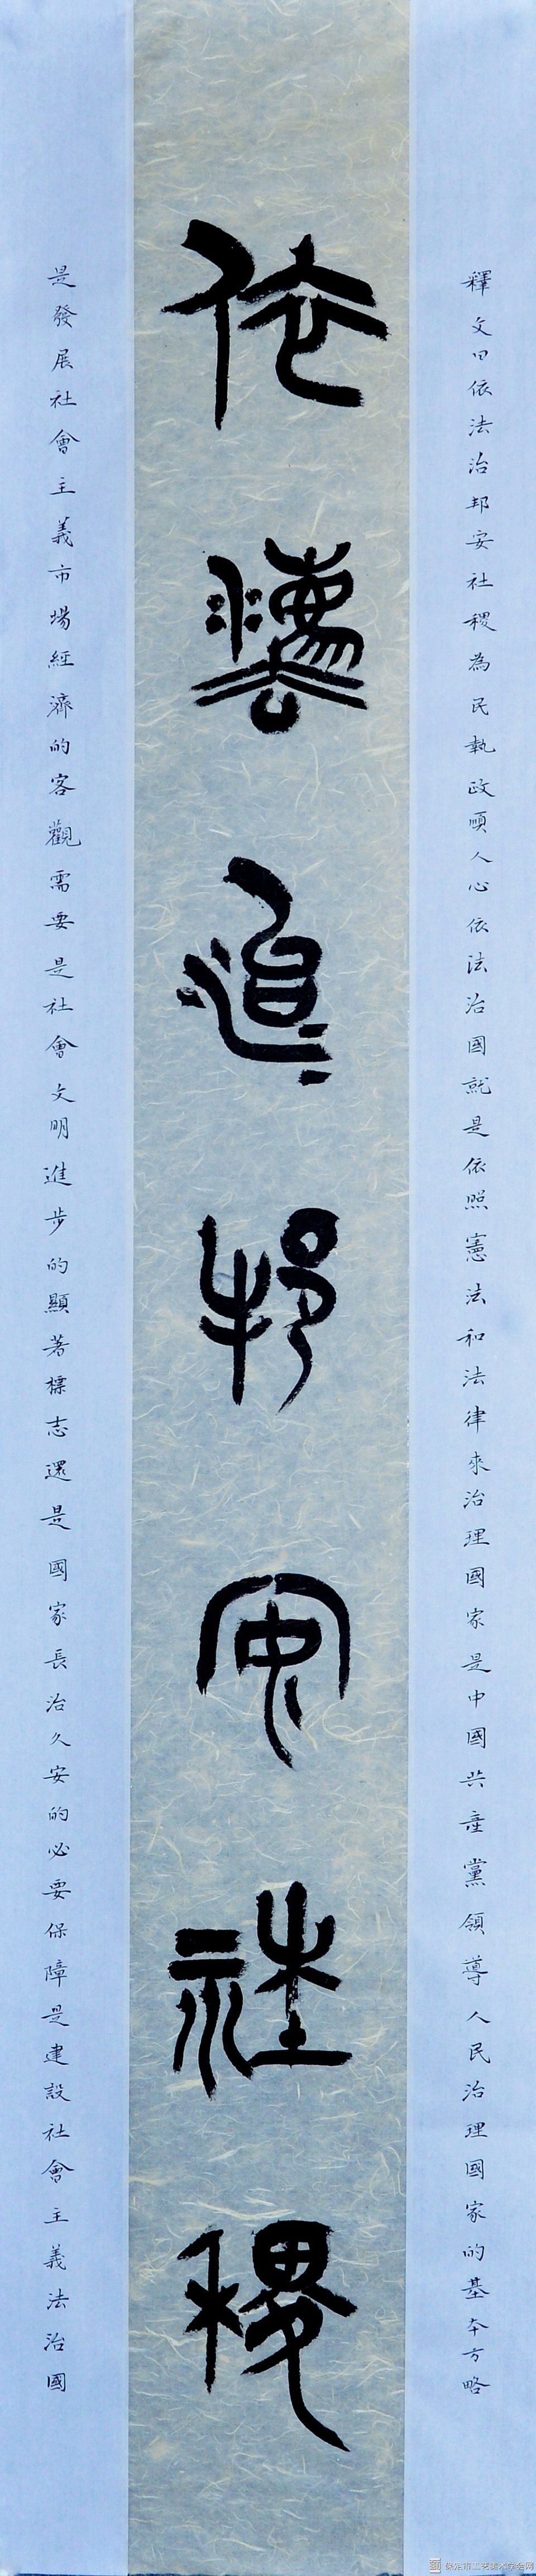 釋文曰依法治邦安社稷為民執政順人心依法治國就是依照憲法和法律來治理國家是中國共產黨領導人民治理國家的基本方略
依灋治邦安社稷
是發展社會主義市場經濟的客觀需要是社會文明進步的顯著標志還是國家長治久安的必要保障是建設社會主義法治國
保定市工艺美术学会网